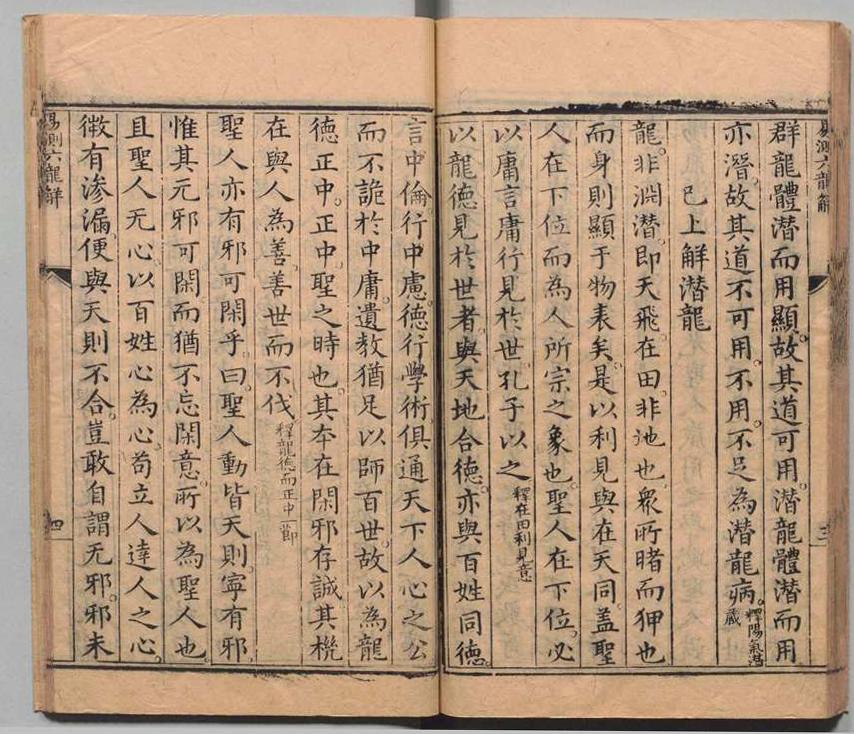 易測六龍解
三
群龍體潛而用顯。故其道可用。潛龍體潛而用
亦潛。故其道不可用。不用。不足為潛龍病。釋陽氣潛藏
已上解潛龍
龍。非淵潛。即天飛。在田。非池也。衆所睹而狎也
而身則顯于物表矣。是以利見與在天同。盖聖
人在下位而為人所宗之象也。聖人在下位。必
以庸言庸行見於世。孔子以之釋在田利見意
以龍德見於世者。與天地合德。亦與百姓同德。
言中倫。行中慮。德行學術俱通天下人心之公
而不詭於中庸。遺教猶足以師百世。故以為龍
德正中。正中。聖之時也。其夲在閑邪存誠其㭁
在與人為善。善世而不伐。釋龍德而正中一節
聖人亦有邪可閑乎。曰。聖人動皆天則。寧有邪
惟其无邪可閑而猶不忘閑意。所以為聖人也
且聖人无心。以百姓心為心。苟立人達人之心。
微有渗漏。便與天則不合。豈敢自謂无邪。邪未
易測六龍解
四